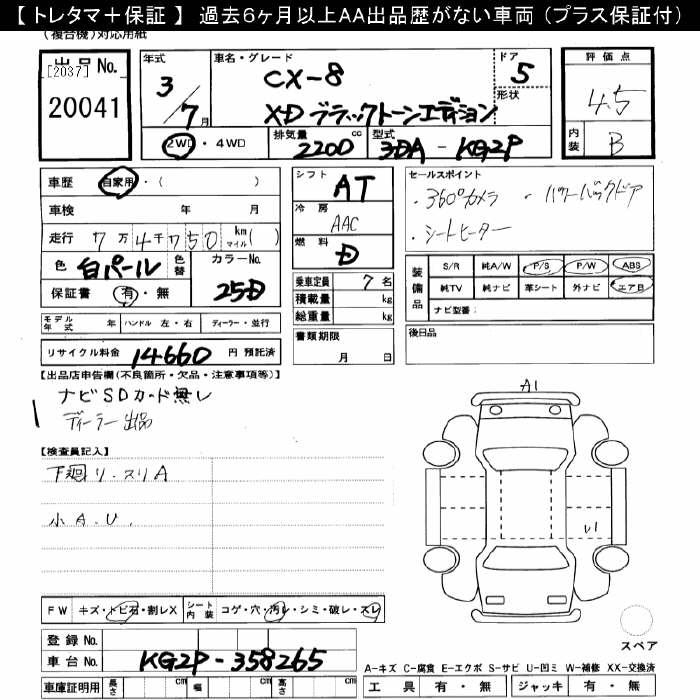 【 トレタマ＋保証 】 過去6ヶ月以上AA出品歴がない車両（プラス保証付）
(複合機)対応用紙
出品No. [2037] 20041
年式 3/7月
車名・グレード CX-8
XD ブラックトーンエディション
ドア 5
形状
評価点 4.5
内装 B
2WD・4WD
排気量 2200 cc
型式 3DA-KG2P
車歴 自家用・( )
車検 年 月
走行 7万4千750 km マイル( )
色 白パール 色替 カラーNo. 25D
保証書 有・無
シフト AT
冷房 AAC
燃料 D
乗車定員 7名
積載量 kg
総重量 kg
書類期限 月 日
セールスポイント
・360°カメラ ・パワーバックドア
・シートヒーター
装備品 S/R 純A/W P/S P/W ABS
純TV 純ナビ 革シート 外ナビ エアB
ナビ型番：
後日品
モデル年式 年 ハンドル 左・右 ディーラー・並行
リサイクル料金 14660 円 預託済
【出品店申告欄(不良箇所・欠品・注意事項等)】
ナビSDカード無し
ディーラー出品
【検査員記入】
下廻り・スリA
小A.U.
A1
U1
FW キズ・トビ石・割レX シート内装 コゲ・穴・汚レ・シミ・破レ・スレ
登録 No.
車台 No. KG2P-358265
車庫証明用 長さ cm 幅 cm 高さ cm
スペア
A-キズ C-腐食 E-エクボ S-サビ U-凹ミ W-補修 XX-交換済
工具 有・無 ジャッキ 有・無